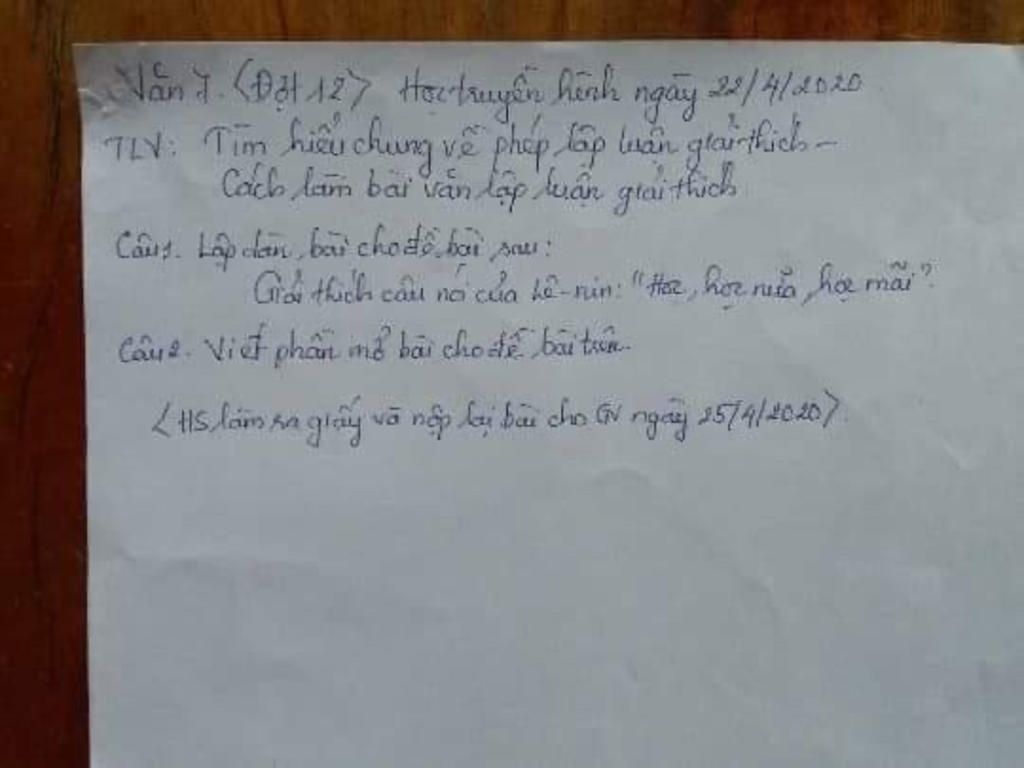 Văn 7. <Đợt 12> Học truyền hình ngày 22/4/2020
TLV: Tìm hiểu chung về phép lập luận giải thích –
Cách làm bài văn lập luận giải thích
Câu 1. Lập dàn bài cho đề bài sau:
Giải thích câu nói của Lê-nin: "Học, học nữa, học mãi".
Câu 2. Viết phần mở bài cho đề bài trên.
<HS làm ra giấy và nộp lại bài cho GV ngày 25/4/2020>.